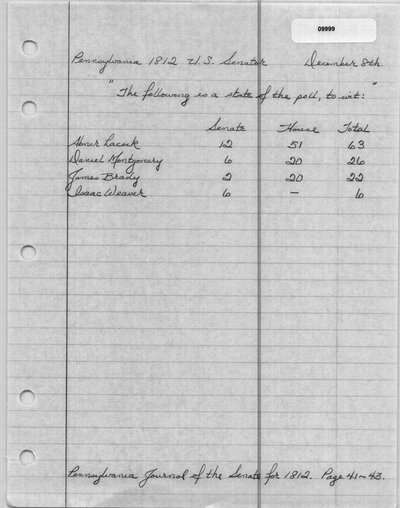 09999
Pennsylvania 1812 U.S. Senator December 8th
"The following is a state of the poll, to wit:"
Senate House Total
Abner Lacock 12 51 63
Daniel Montgomery 6 20 26
James Brady 2 20 22
Isaac Weaver 6 — 6
Pennsylvania Journal of the Senate for 1812. Page 41-43.